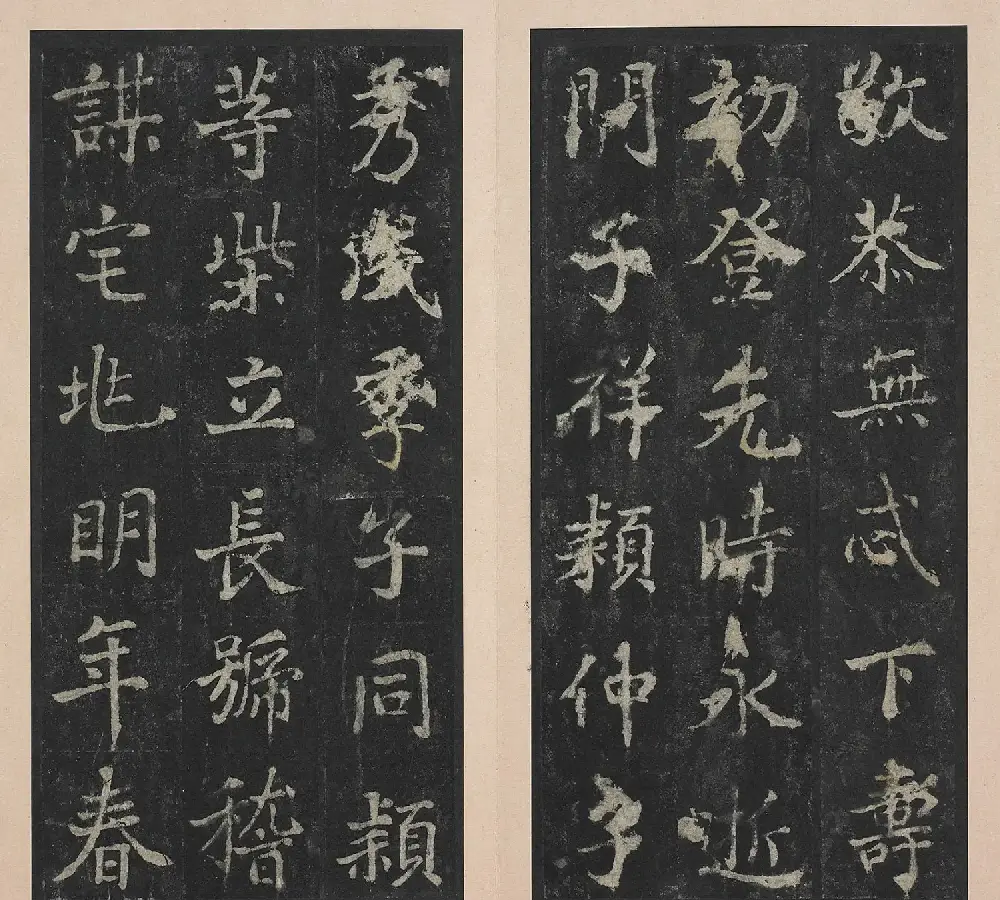 敬恭無忒下壽
初登先時永逝
門子祥穎仲子
秀季子同穎
等柴立長號稽
謀宅兆明年春